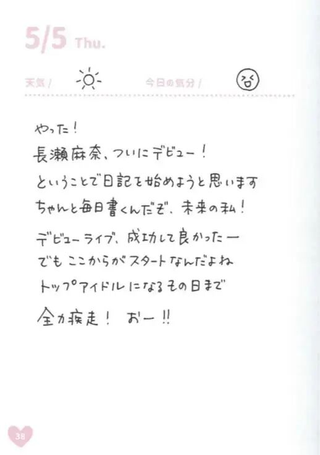 5/5 Thu.
天気/ 今日の気分/
やった!
長瀬麻奈、ついにデビュー!
ということで日記を始めようと思います
ちゃんと毎日書くんだぞ、未来の私!
デビューライブ、成功して良かったー
でもここからがスタートなんだよね
トップアイドルになるその日まで
全力疾走! おー!!
36